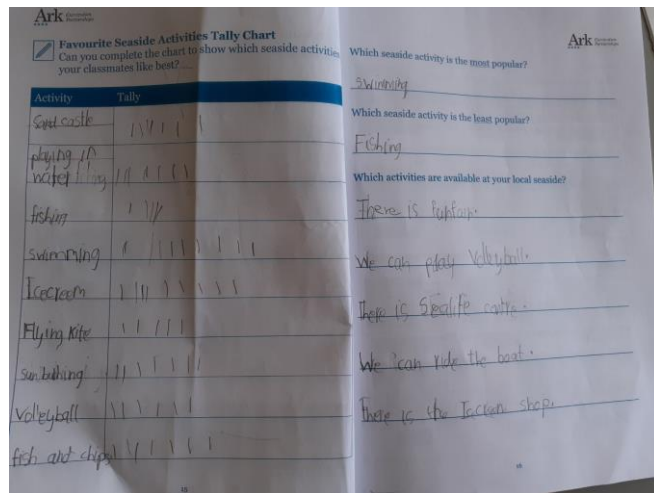 Ark
Favourite Seaside Activities Tally Chart
Can you complete the chart to show which seaside activities
your classmates like best?
Activity Tally
Sand castle
playing in
water
fishin
swimming
Icecream
Flying kite
sunbathing
Volleyball
fish and chips
15
Ark
Which seaside activity is the most popular?
swimming
Which seaside activity is the least popular?
Fishing
Which activities are available at your local seaside?
There is funfair.
We can play Volleyball.
There is Sealife centre.
We can ride the boat.
There is the Icecream shop.
16